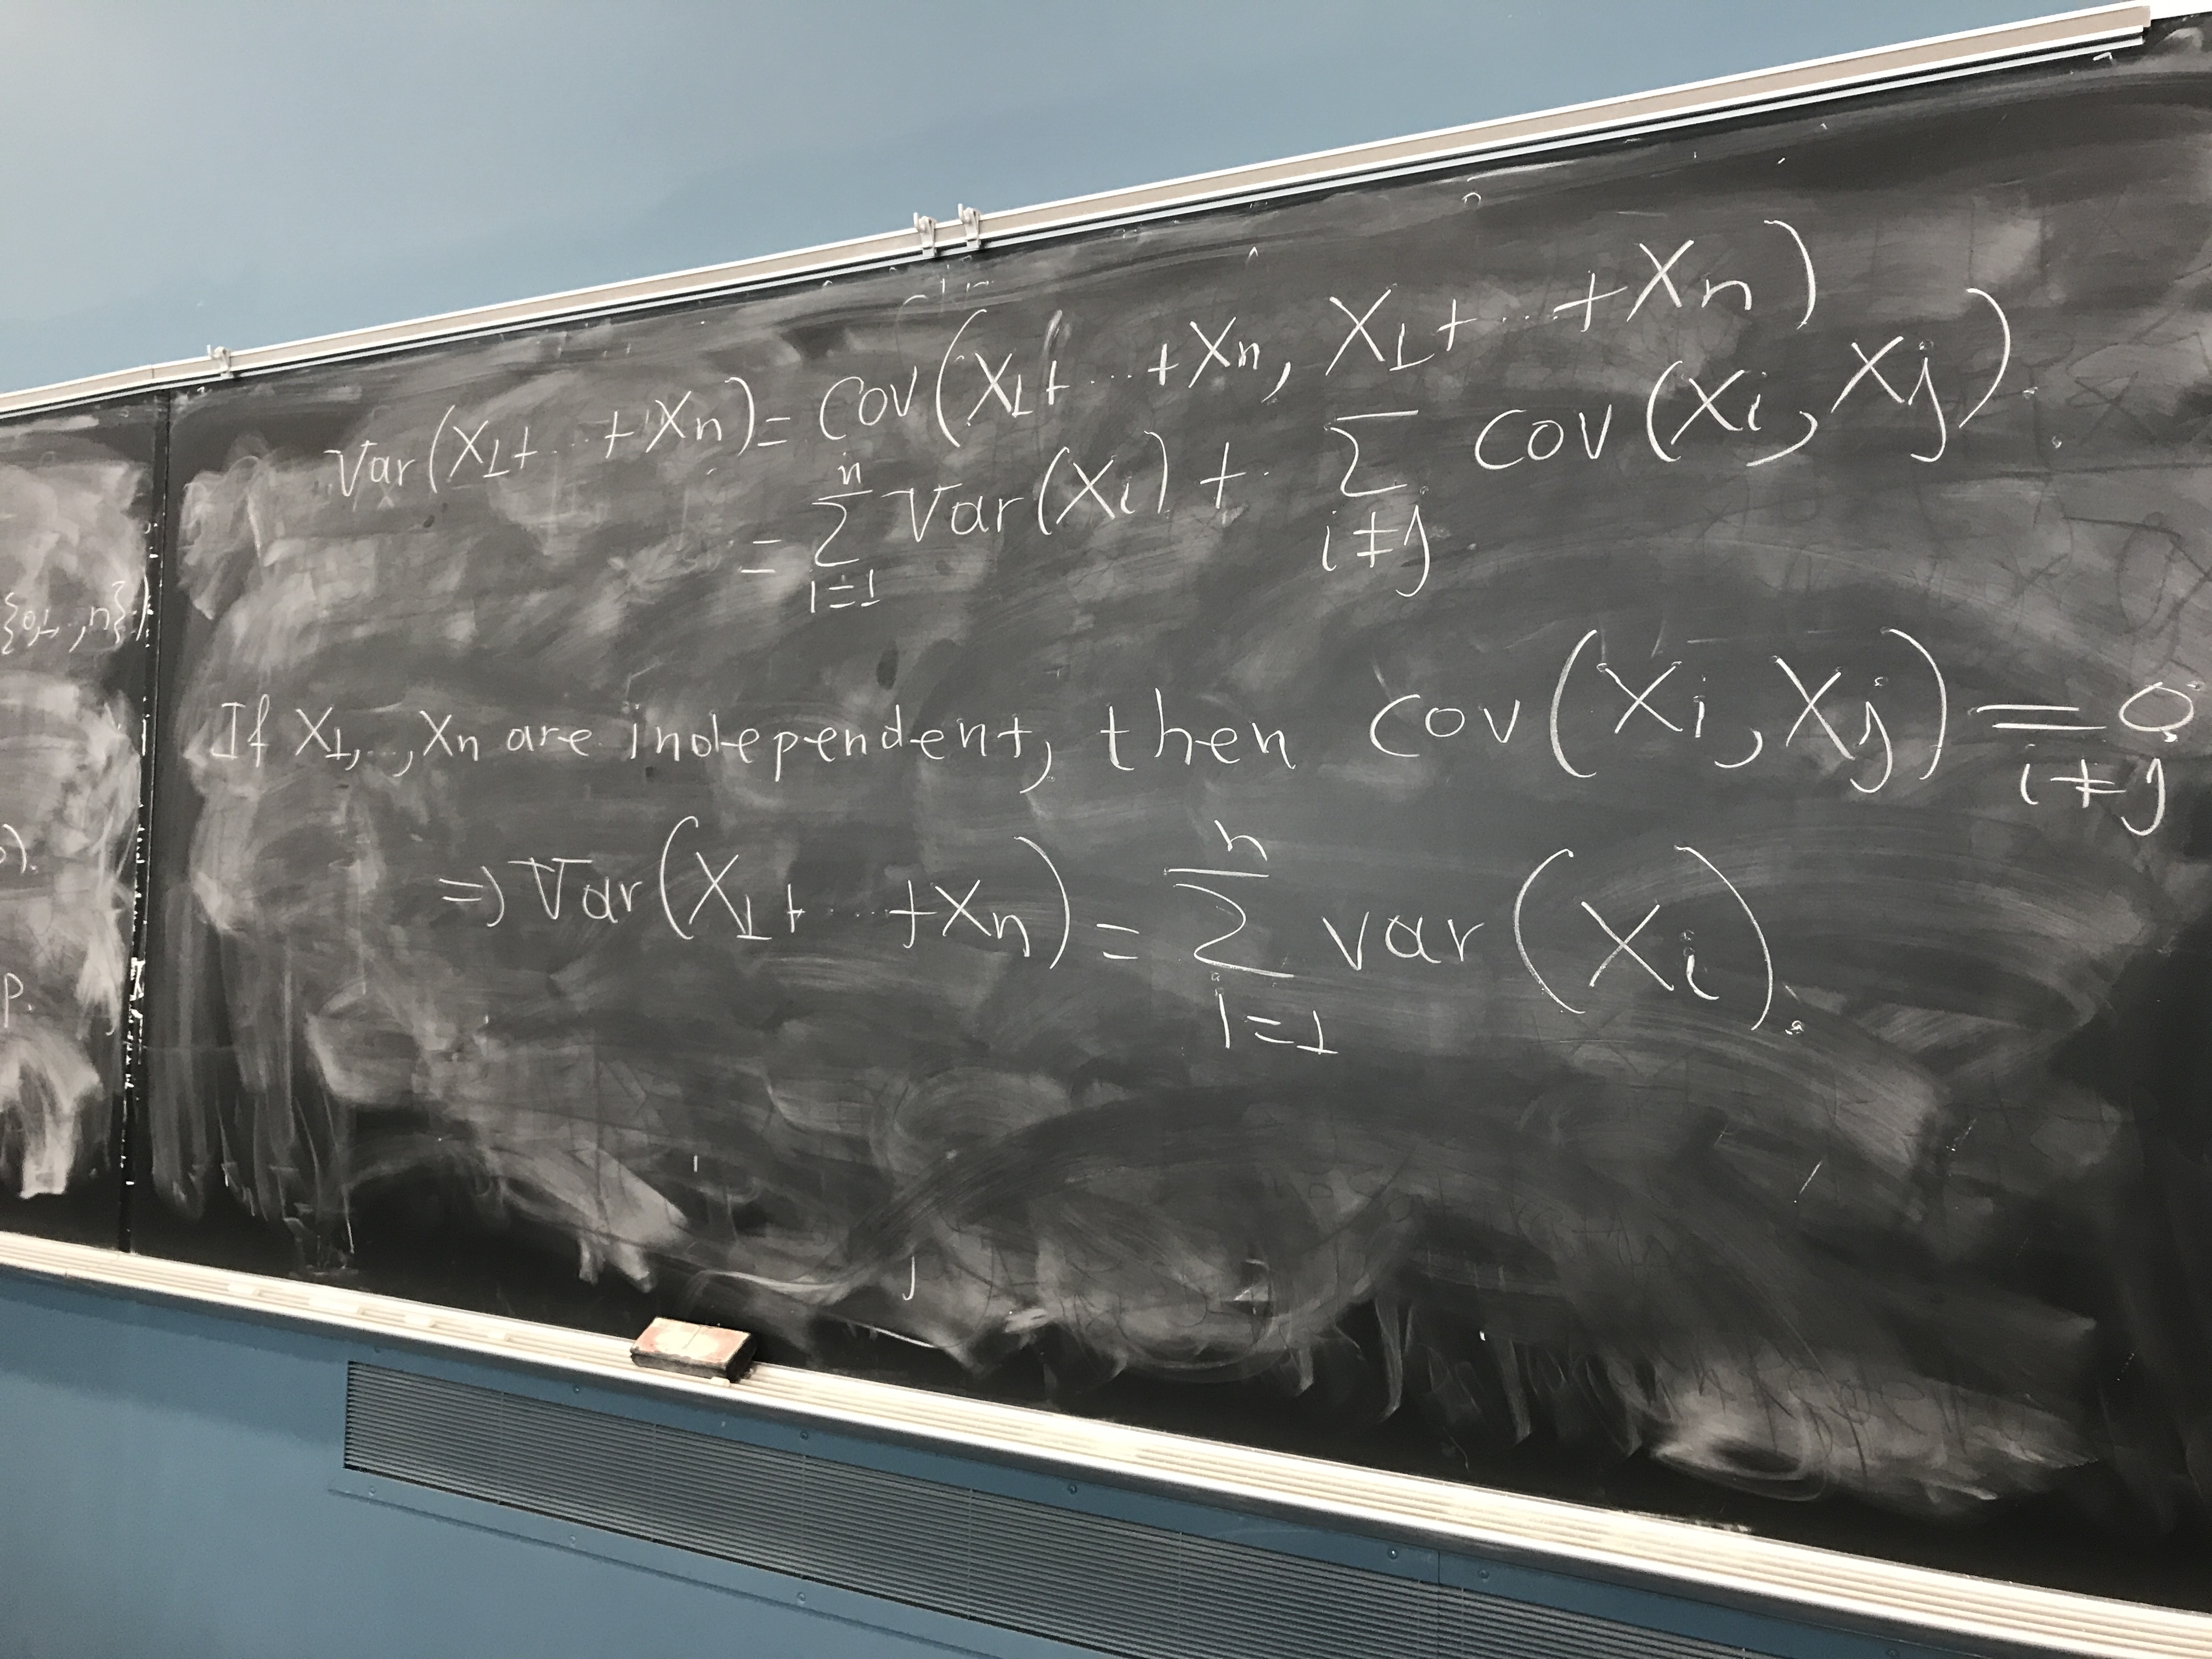 Var(X₁+...+Xn) = Cov(X₁+...+Xn, X₁+...+Xn)
= ∑_{i=1}^{n} Var(Xi) + ∑_{i≠j} cov(Xi, Xj).
{0,1,..,n}).
If X₁,..,Xn are independent, then cov(Xi, Xj) = 0, i≠j
⇒ Var(X₁+...+Xn) = ∑_{i=1}^{n} var(Xi).
p.